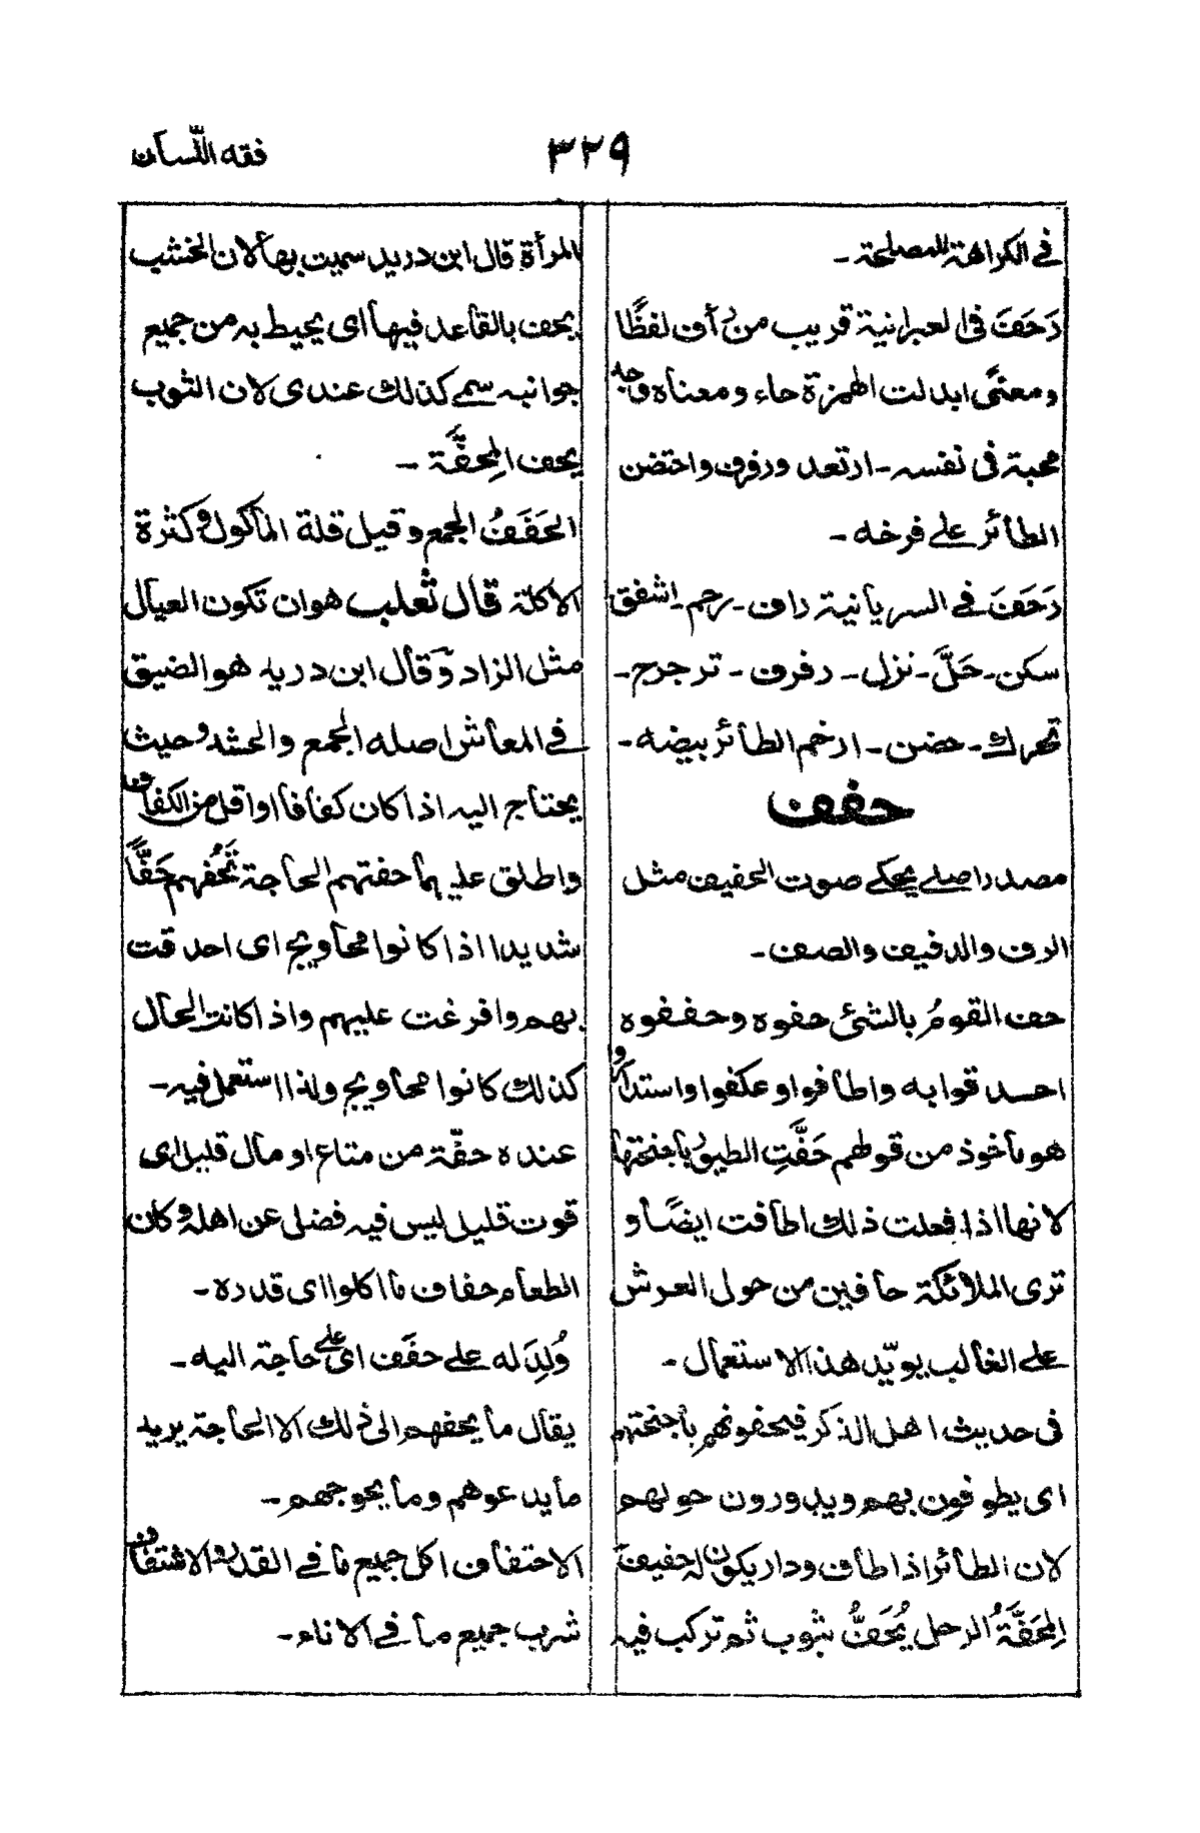 فقه اللّسان
٣٢٩
في الكراهة للمصلحة -
رَحَفَ في العبرانية قريب من رأف لفظًا
ومعنًى ابدلت الهمزة حاء ومعناه وجد
محبة في نفسه - ارتعد ورفرف واحتضن
الطائر على فرخه -
رَحَفَ في السريانية راف - رحم - اشفق
سكن - حَلَّ - نزل - رفرف - ترجرج -
تحرك - حضن - ارخم الطائر بيضه -
حفف
مصدر اصلي يحكي صوت الحفيف مثل
الرف والدفيف والصف -
حف القومُ بالشئ حفوه وحففوه
احدقوا به واطافوا وعكفوا واستداروا
هو ماخوذ من قولهم حَفَّتِ الطيرُ باجنحتها
لانها اذا فعلت ذلك اطافت ايضًا و
ترى الملائكة حافين من حول العرش
على الغالب يويّد هذا الاستعمال -
في حديث اهل الذكر فيحفونهم باجنحتهم
اى يطوفون بهم ويدورون حولهم
لان الطائر اذا طاف ودار يكون له حفيف
المِحَفَّةُ الرحل يُحَفُّ بثوب ثم تركب فيه
المرأة قال ابن دريد سميت بها لان الخشب
يحف بالقاعد فيها اى يحيط به من جميع
جوانبه سمى كذلك عندى لان الثوب
يحف المِحفَّة -
الحَفَفُ الجمع وقيل قلة الماكول وكثرة
الاكلة قال ثعلب هو ان تكون العيال
مثل الزاد وقال ابن دريد هو الضيق
في المعاش اصله الجمع والحشد وحيث
يحتاج اليه اذا كان كفافا او اقل من الكفاف
واطلق عليها حفتهم الحاجة تَحُفُّهم حَفًّا
شديدا اذا كانوا محاويج اى احدقت
بهم وافرغت عليهم واذا كانت الحال
كذلك كانوا محاويج ولذا استعمل فيه -
عنده حفّة من متاع او مال قليل اى
قوت قليل ليس فيه فضل عن اهله وكان
الطعام حفاف ما اكلوا اى قدره -
وُلِدَ له على حفَف اى على حاجة اليه -
يقال ما يحفهم الى ذلك الا الحاجة يريد
ما يدعوهم وما يحوجهم -
الاحتفاف اكل جميع ما في القدر والاشتفاف
شرب جميع ما في الاناء -